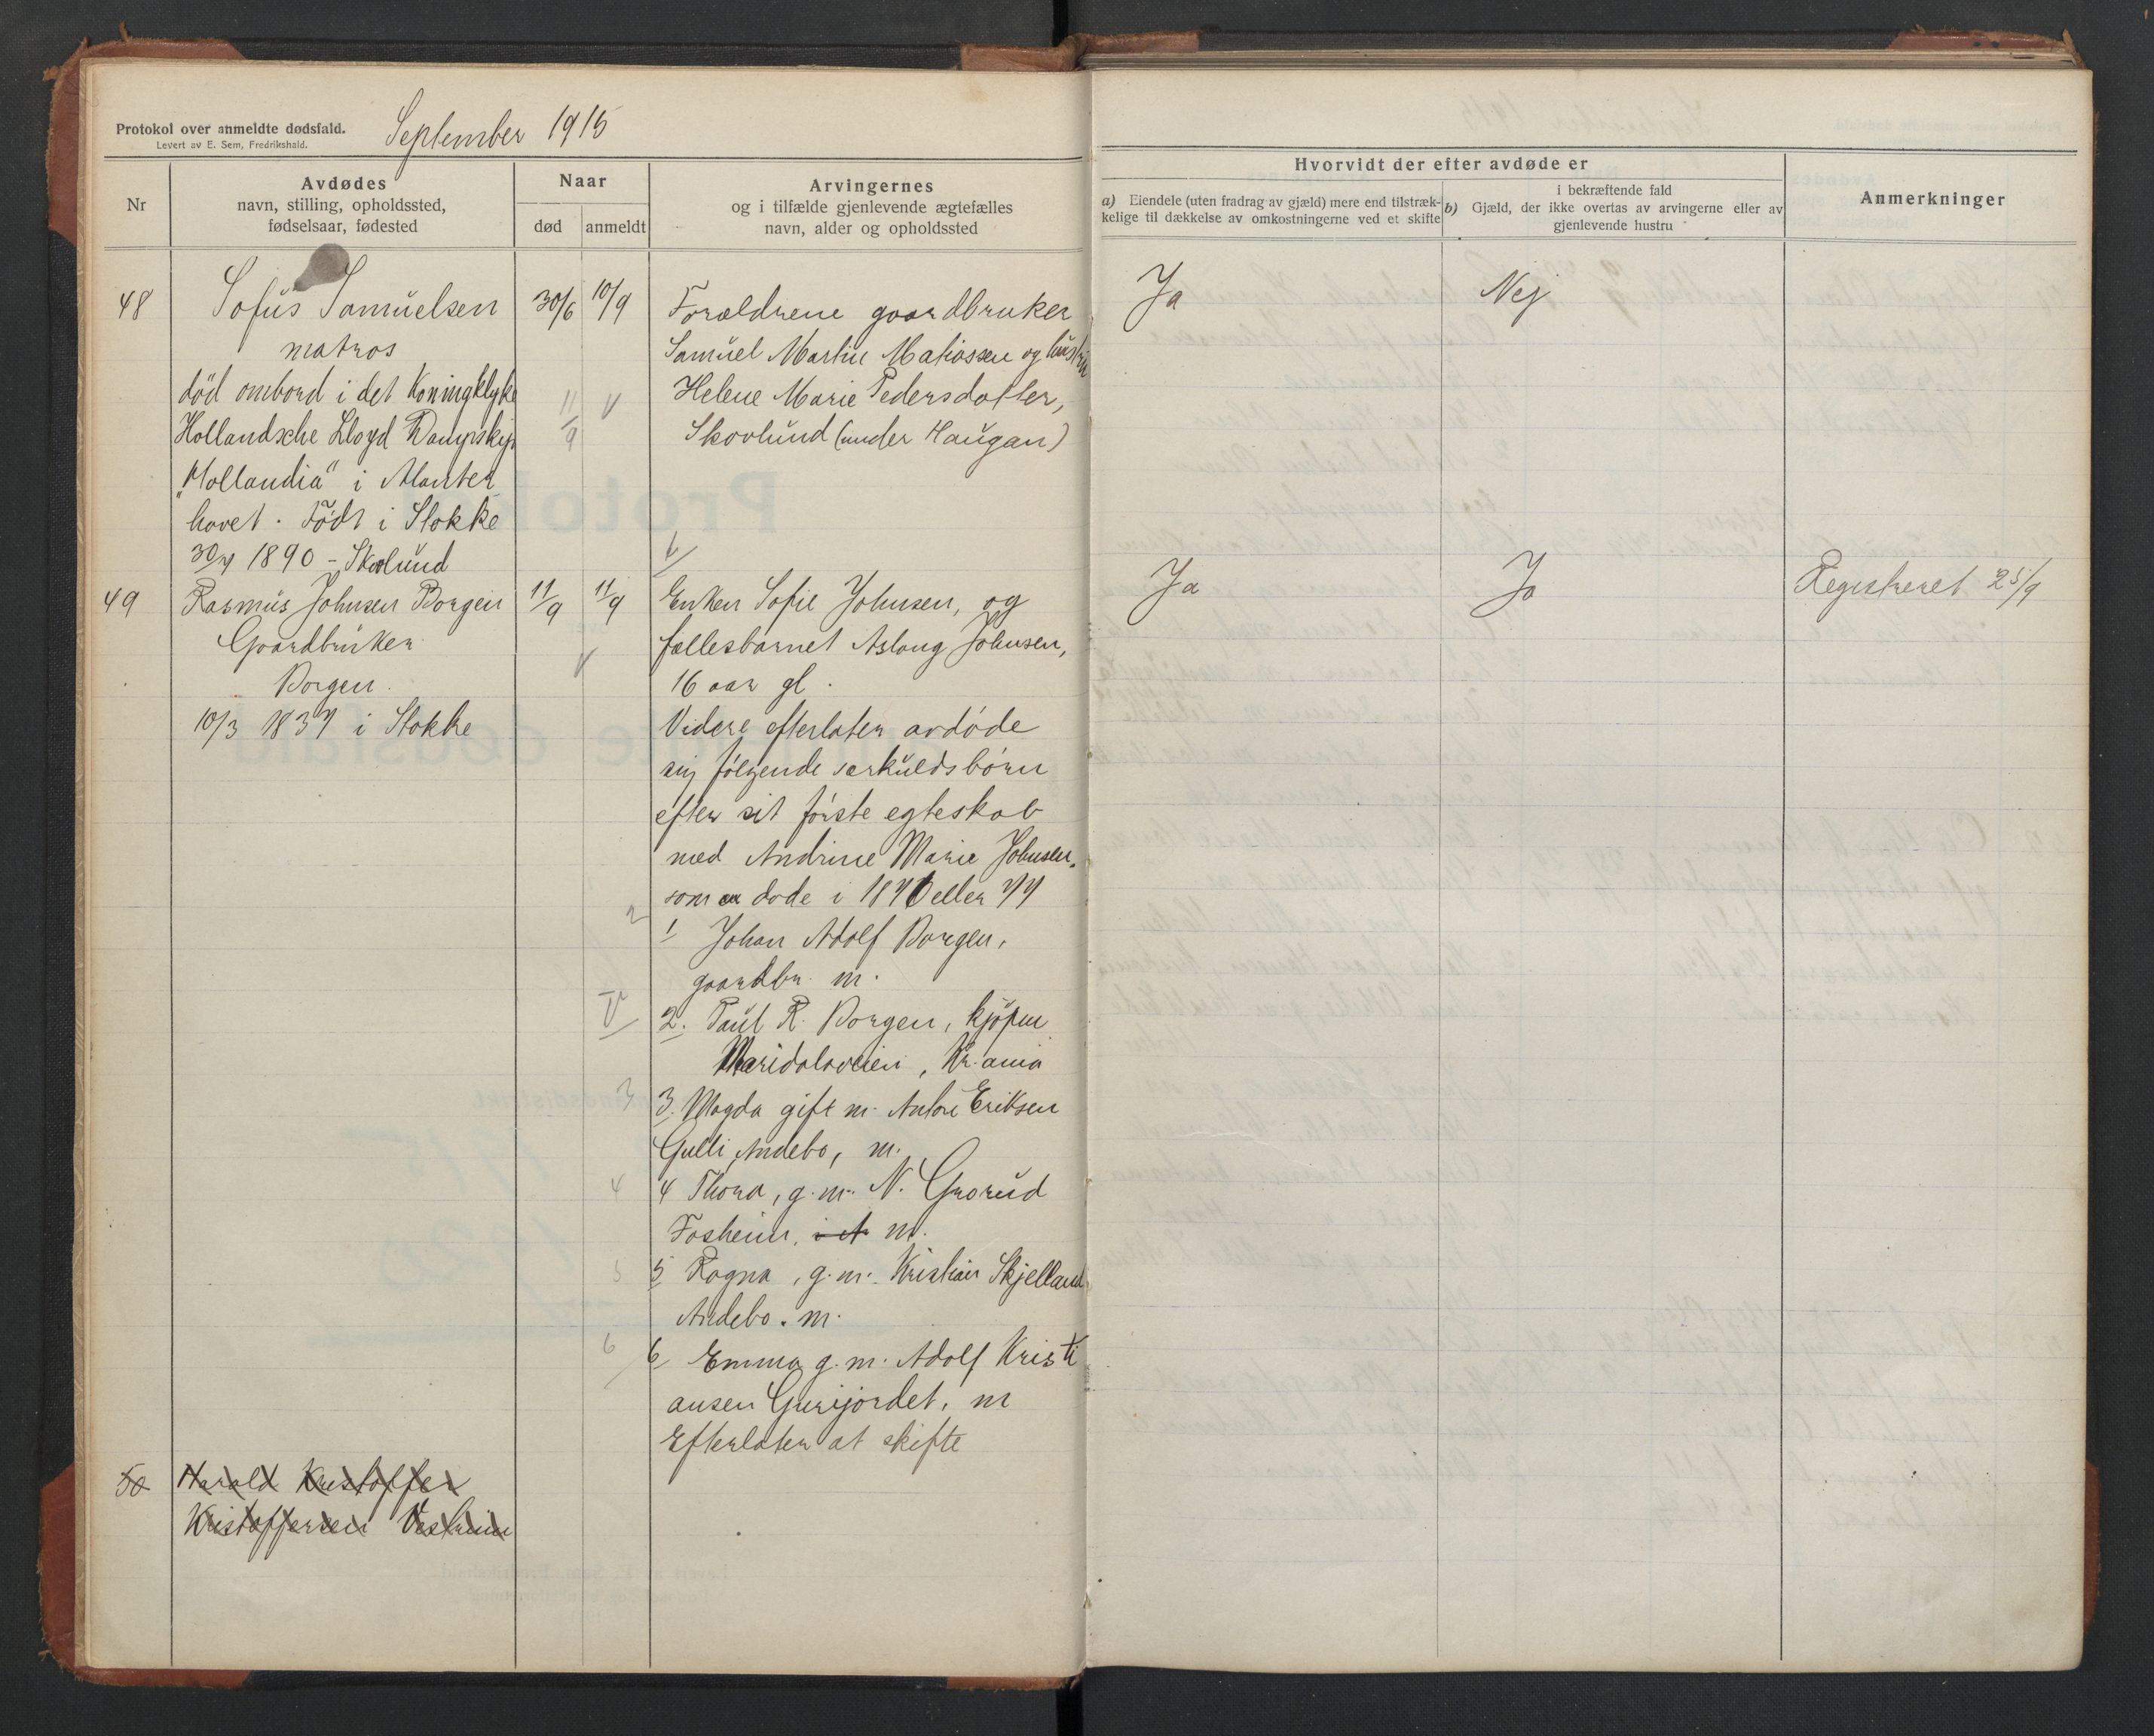 Protokol over anmeldte dødsfald.
Levert av E. Sem, Fredrikshald.
September 1915
Nr
Avdødes
navn, stilling, opholdssted,
fødselsaar, fødested
Naar
død
anmeldt
Arvingernes
og i tilfælde gjenlevende ægtefælles
navn, alder og opholdssted
Hvorvidt der efter avdøde er
a) Eiendele (uten fradrag av gjæld) mere end tilstræk-
kelige til dækkelse av omkostningerne ved et skifte
i bekræftende fald
b) Gjæld, der ikke overtas av arvingerne eller av
gjenlevende hustru
Anmerkninger
48
Sofus Samuelsen
matros
død ombord i det Koningklyke
Hollandsche Lloyd Dampskip
"Hollandia" i Atlanter
havet. Født i Stokke
30/4 1890 - Skovlund
30/6
10/9
11/9
V
Forældrene gaardbruker
Samuel Martin Matiassen og hustru
Helene Marie Pedersdatter,
Skovlund (under Haugan)
Ja
Nej
49
Rasmus Johnsen Borgen
Gaardbruker
Borgen.
10/3 1837 i Stokke
11/9
11/9
V
1/
Enken Sofie Johnsen, og
fællesbarnet Aslaug Johnsen,
16 aar gl.
Videre efterlater avdøde
sig følgende særkuldsbørn
efter sit første egteskab
med Andrine Marie Johnsen,
som døde i 1876 eller 77
2
1 Johan Adolf Borgen,
gaardbr. m.
2. Paul R. Borgen, kjøpm
Maridalsveien, Kr.ania
3
3. Magda gift m. Anton Eriksen
Gulli Andebo, m.
4
4 Thora, g.m. N. Grorud
Fosheim, m.
5
5 Ragna, g.m. Kristian Skjelland
Andebo. m.
6
6 Emma g.m. Adolf Kristi
ansen Gurijordet, m
Efterlater at skifte
Ja
Ja
Registreret 25/9
50
Harald Kristoffer
Kristoffersen Vestheim